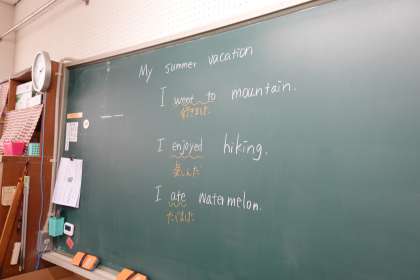 My summer vacation
I went to mountain.
行きました
I enjoyed hiking.
楽しんだ
I ate watermelon.
たべました